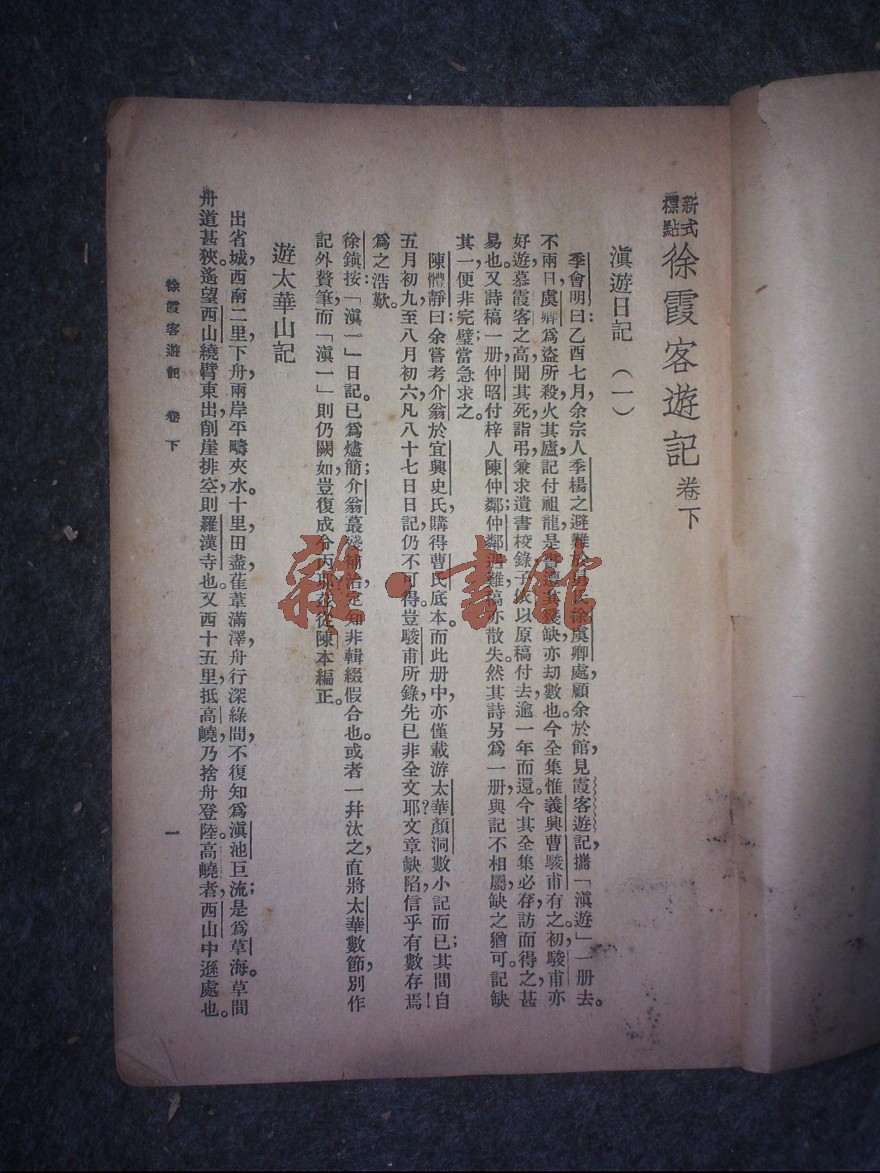 新式標點 徐霞客遊記 卷下
滇遊日記(一)
季會明曰:乙酉七月,余宗人季楊之避難於舅氏徐虞卿處,顧余於館,見霞客遊記,攜「滇遊」一册去。
不兩日,虞卿爲盜所殺,火其廬,記付祖龍,是書遭其殘缺,亦刧數也。今全集惟義興曹駿甫有之。初,駿甫亦
好遊,慕霞客之高,聞其死,詣弔,兼求遺書校錄,予依以原稿付去,逾一年而還。今其全集必存,訪而得之甚
易也。又詩稿一册,仲昭付梓人陳仲鄰;仲鄰遇難,稿亦散失。然其詩另爲一册,與記不相屬,缺之猶可。記缺
其一,便非完璧,當急求之。
陳體靜曰:余嘗考介翁於宜興史氏,購得曹氏底本。而此册中,亦僅載游太華顏洞數小記而已;其間自
五月初九至八月初六,凡八十七日日記,仍不可得。豈駿甫所錄,先已非全文耶?文章缺陷,信乎有數存焉!
爲之浩歎。
徐鎮按:「滇一」日記。已爲燼簡;介翁蒐殘補治,定知非輯綴假合也。或者一幷汰之,直將太華數節,別作
記外贅筆,而「滇一」則仍闕如,豈復成分丙耶?茲從陳本編正。
遊太華山記
出省城,西南二里下舟,兩岸平疇夾水。十里,田盡,萑葦滿澤,舟行深綠間,不復知爲滇池巨流;是爲草海。草間
舟道甚狹。遙望西山繞臂東出,削崖排空,則羅漢寺也。又西十五里,抵高嶢,乃捨舟登陸。高嶢者,西山中遜處也。
徐霞客遊記 卷下 一
雜·書館